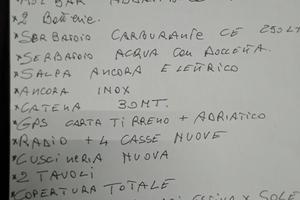 *2 BATTERIE.
*SERBATOIO CARBURANTE CE 250 LT
*SERBATOIO ACQUA CON DOCCETTA.
*SALPA ANCORA ELETTRICO
*ANCORA INOX
*CATENA 30 MT.
*GPS CARTA TIRRENO + ADRIATICO
*RADIO + 4 CASSE NUOVE
*CUSCINERIA NUOVA
*2 TAVOLI
*COPERTURA TOTALE